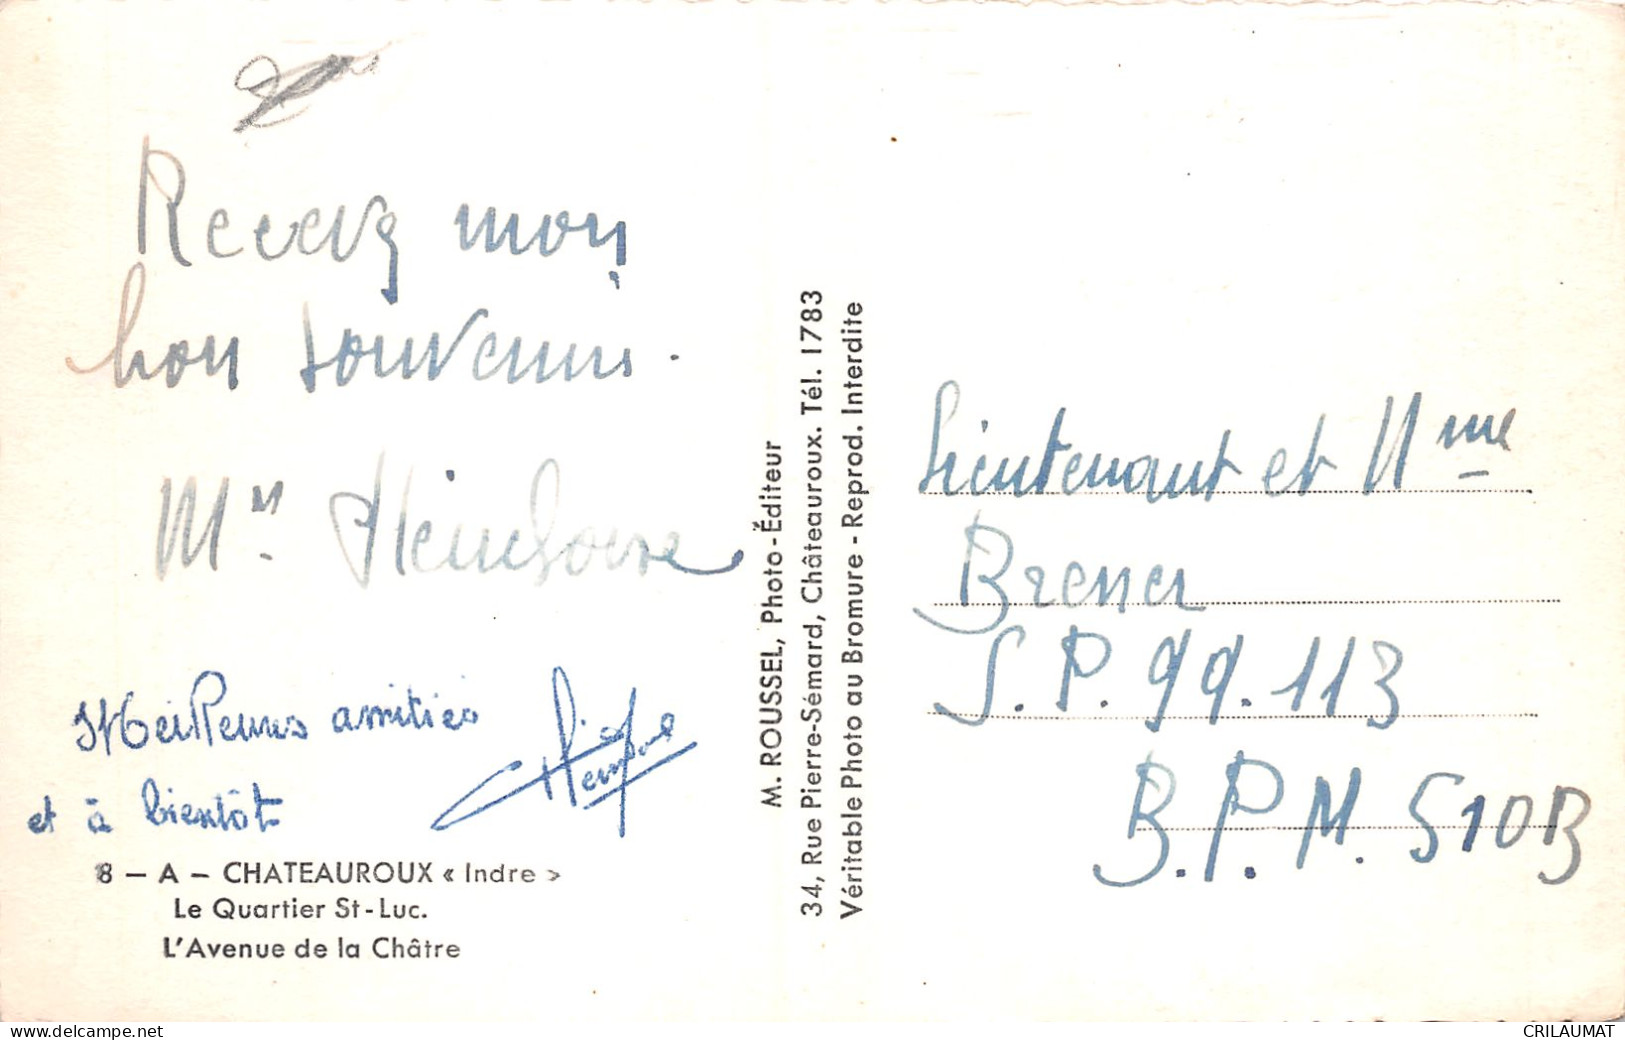 Recevez mon
bon souvenir.
Meilleures amitiés
et à bientôt
8 — A — CHATEAUROUX « Indre »
Le Quartier St-Luc.
L'Avenue de la Châtre
M. ROUSSEL, Photo-Éditeur
34, Rue Pierre-Sémard, Châteauroux. Tél. 1783
Véritable Photo au Bromure - Reprod. Interdite
Lieutenant et Mme
Brener
S.P. 99.113
B.P.M. 510B
www.delcampe.net
CRILAUMAT